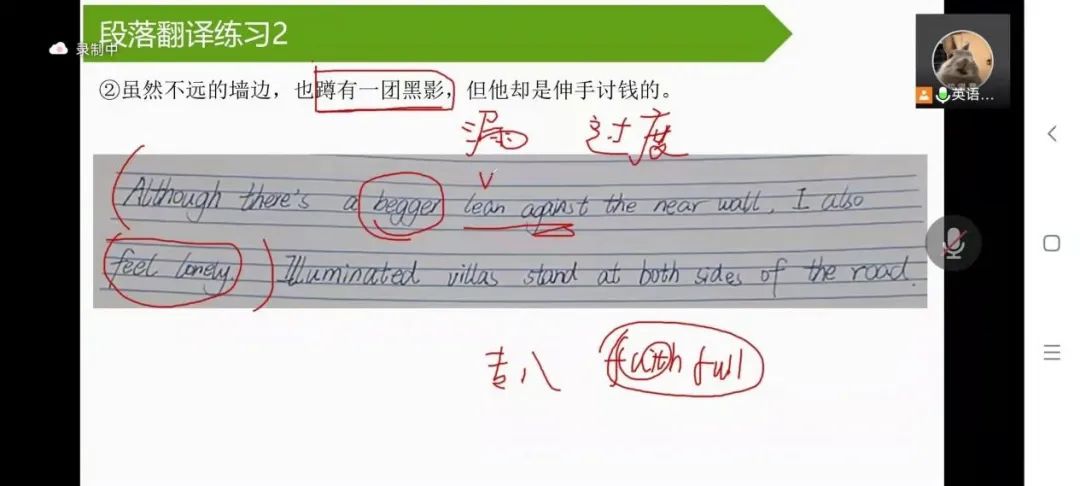 段落翻译练习2
录制中
②虽然不远的墙边，也蹲有一团黑影，但他却是伸手讨钱的。
英语...
漏 过度
Although there's a begger lean against the near wall, I also
feel lonely. Illuminated villas stand at both sides of the road.
专八 faithfull